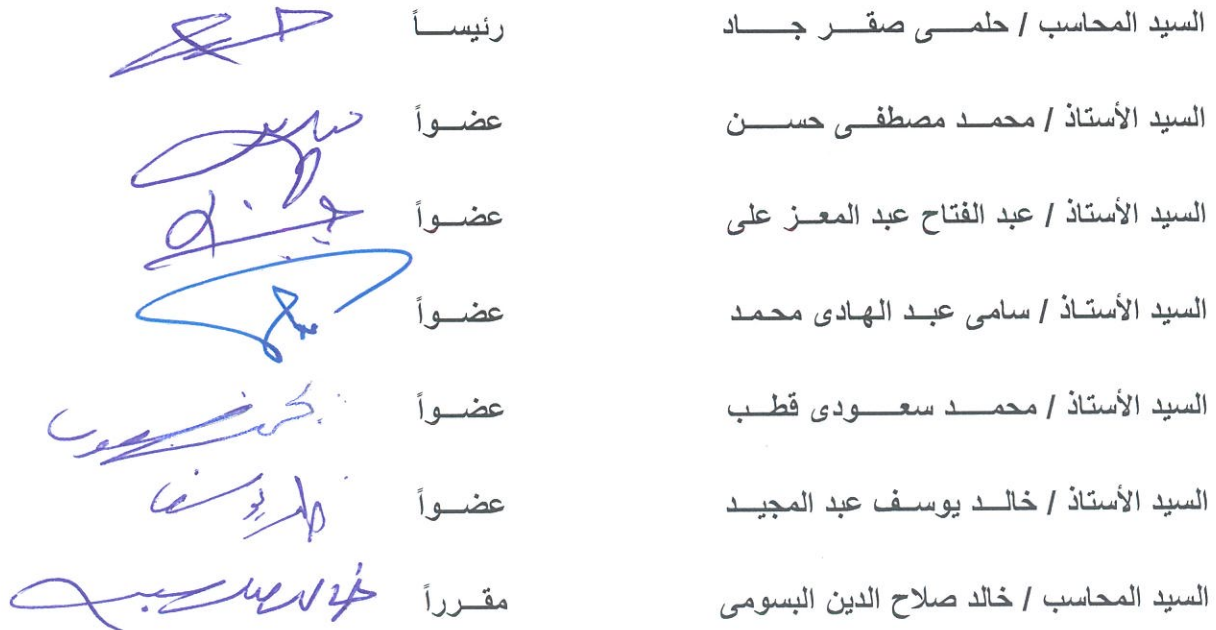 السيد المحاسب / حلمى صقر جاد رئيساً
السيد الأستاذ / محمد مصطفى حسن عضواً
السيد الأستاذ / عبد الفتاح عبد المعز على عضواً
السيد الأستاذ / سامى عبد الهادى محمد عضواً
السيد الأستاذ / محمد سعودى قطب عضواً
السيد الأستاذ / خالد يوسف عبد المجيد عضواً
السيد المحاسب / خالد صلاح الدين البسومى مقرراً